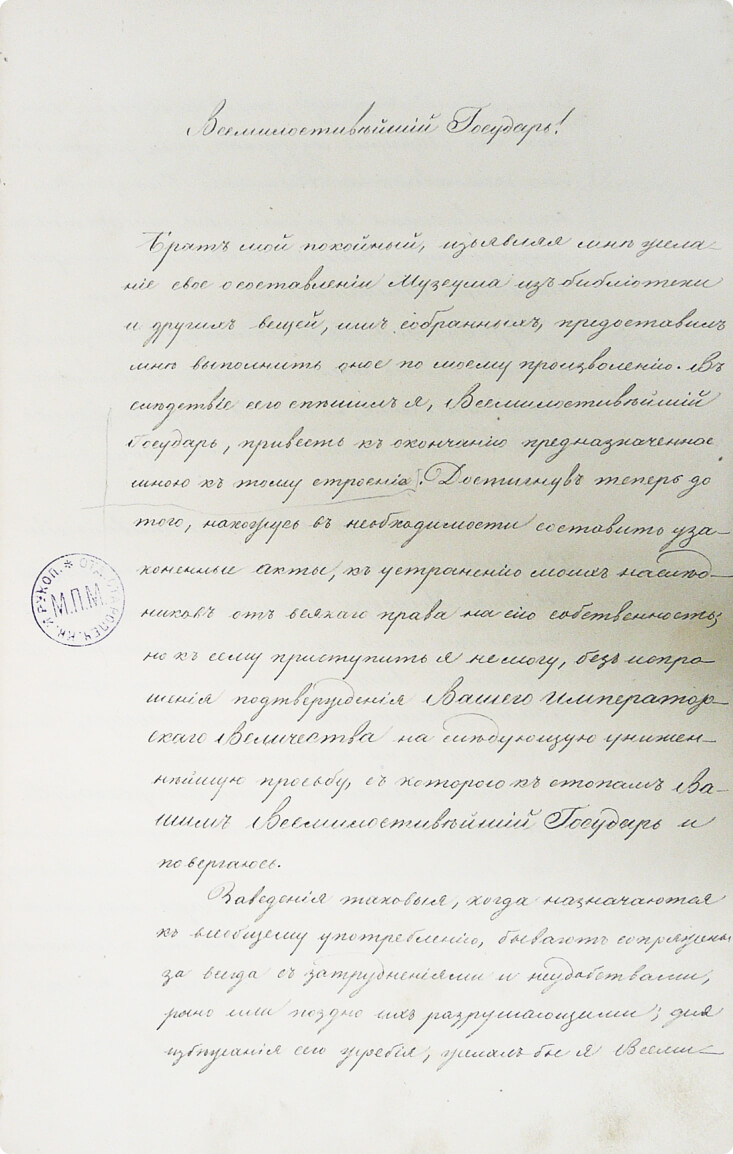 Всемилостивѣйшій Государь!
Братъ мой покойный, изъявляя мнѣ жела-
ніе свое о составленіи Музеума изъ библіотеки
и другихъ вещей, имъ собранныхъ, предоставилъ
мнѣ выполнить оное по моему произволенію. Въ
слѣдствіе сего спѣшилъ я, Всемилостивѣйшій
Государь, привесть къ окончанію предназначенное
мною къ тому строеніе. Достигнувъ теперь до
того, нахожусь въ необходимости составить уза-
коненные акты, къ устраненію моихъ наслѣд-
никовъ отъ всякаго права на сію собственность;
но къ сему приступить я не могу, безъ испро-
шенія подтвержденія Вашего Император-
скаго Величества на слѣдующую унижен-
нѣйшую просьбу, съ которою къ стопамъ Ва-
шимъ Всемилостивѣйшій Государь и
повергаюсь.
Заведенія таковыя, когда назначаются
къ всеобщему употребленію, бываютъ сопряжены
за всегда съ затрудненіями и неудобствами,
рано или поздно ихъ разрушающими; для
избѣжанія сего жребія, желалъ бы я Всеми-
ОТД. СТАРОПЕЧ. КН. И РУКОП.
М.П.М.